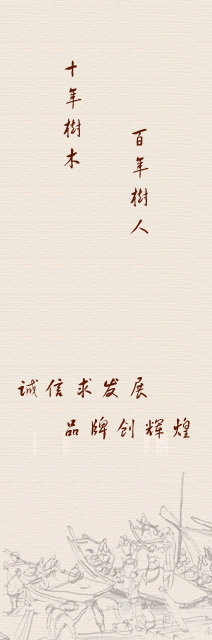 十年樹木
百年樹人
诚信求发展
品牌创辉煌